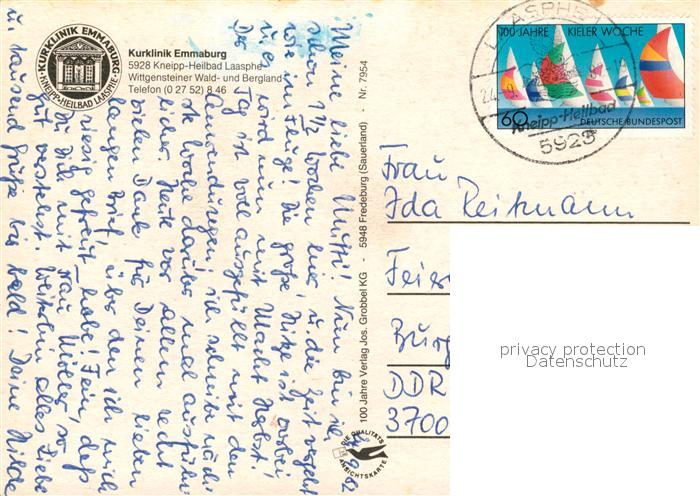 KURKLINIK EMMABURG
KNEIPP-HEILBAD LAASPHE
Kurklinik Emmaburg
5928 Kneipp-Heilbad Laasphe
Wittgensteiner Wald- und Bergland
Telefon (0 27 52) 8 46
Nr. 7954
5948 Fredeburg (Sauerland)
100 Jahre Verlag Jos. Grobbel KG
DIE QUALITÄTS
ANSICHTSKARTE
LAASPHE
Kneipp-Heilbad
5928
100 JAHRE KIELER WOCHE
60
DEUTSCHE BUNDESPOST
Frau
Ida Reitmann
Feier
Burg
DDR
3700
privacy protection
Datenschutz
9.82
Meine liebe Mutti! Nun bin ich
schon 1½ Wochen hier u. die Zeit vergeht
wie im Fluge! Die große Hitze ist vorbei
u. es wird nun mit Macht Herbst.
Der Tag ist voll ausgefüllt mit den
Anwendungen, ich schreibe näch-
ste Woche darüber mal ausführ-
licher. Heute vor allem recht
vielen Dank für Deinen lieben
langen Brief, über den ich mich
riesig gefreut habe! Fein, daß
Du Dich mit Frau Möller so
gut verstehst. Weiterhin alles Liebe
u. tausend Grüße bis bald! Deine Hilde